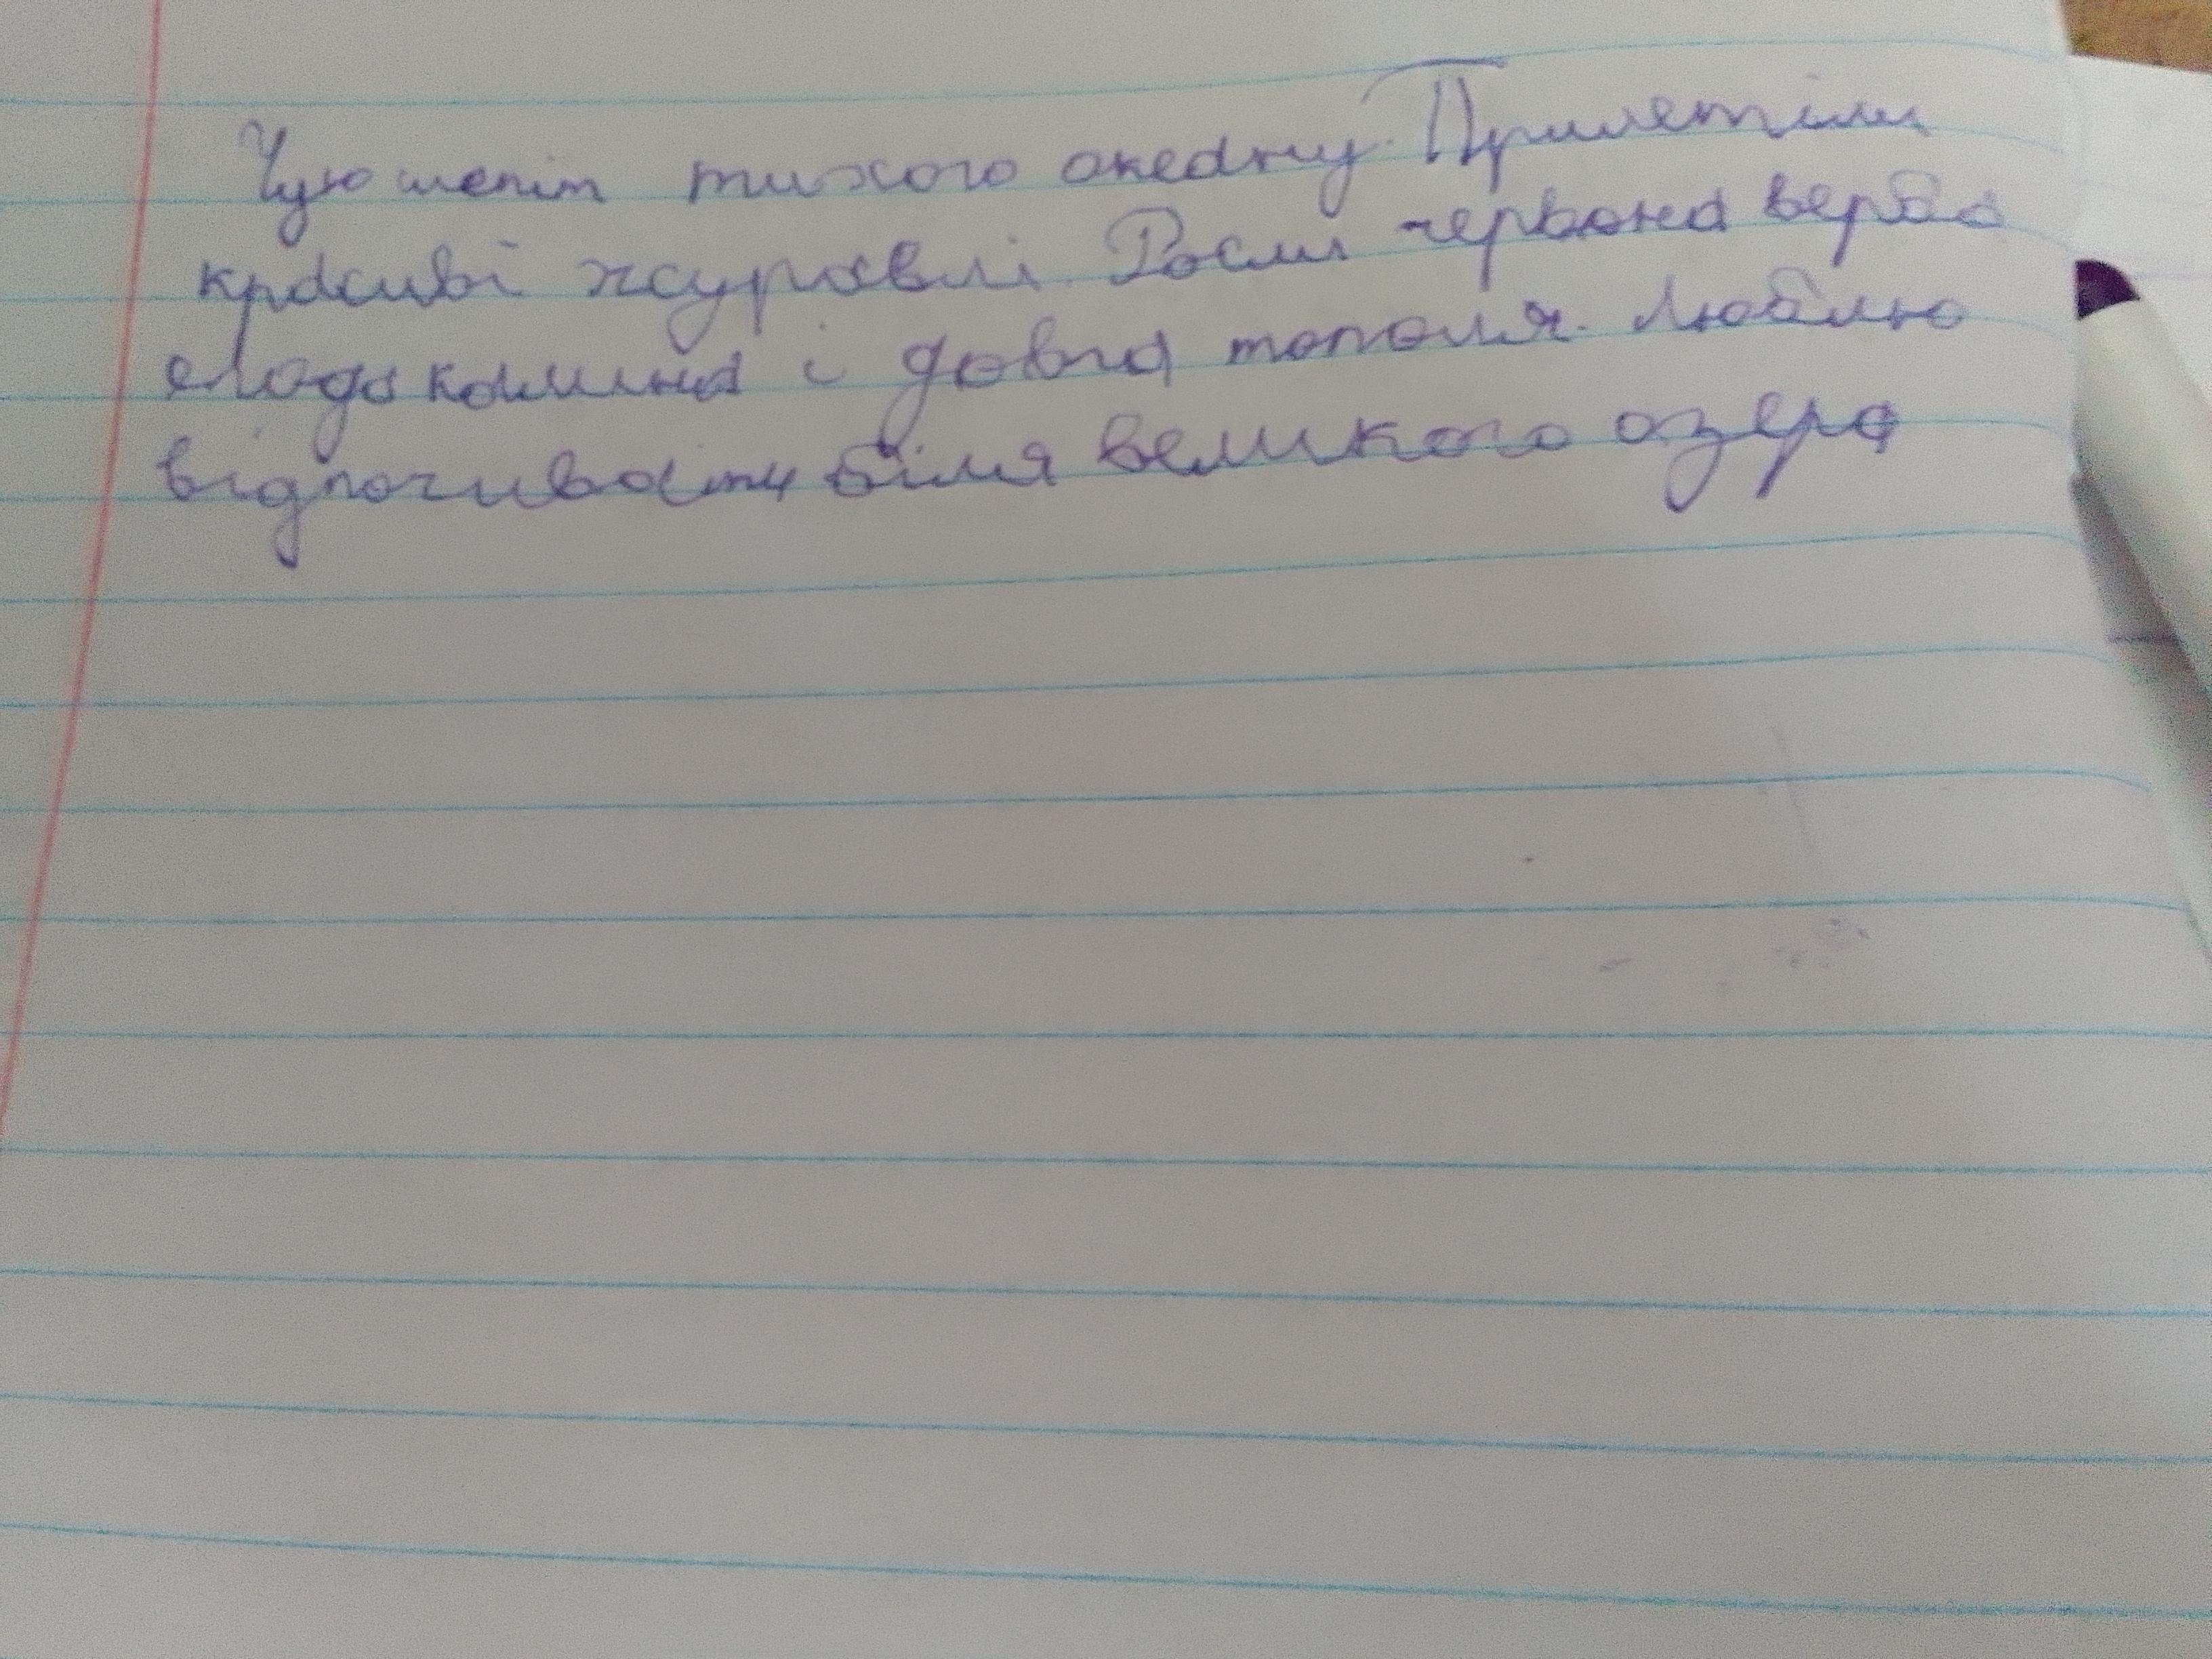 Чую шепіт тихого океану. Прилетіли
красиві журавлі. Росли червона верба
молода калина і довга тополя. Люблю
відпочивати біля великого озера